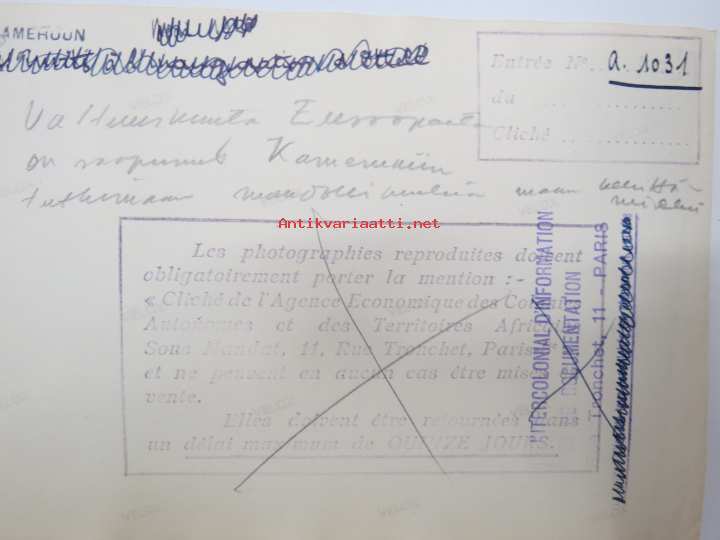 CAMEROUN
Entrée No. a. 1031
du
Cliché
Valtuuskunta Euroopasta
on saapunut Kameruniin
tutkimaan mahdollisuuksia maan
Antikvariaatti.net
Les photographies reproduites doivent
obligatoirement porter la mention :-
« Cliché de l'Agence Economique des Colonies
Autonomes et des Territoires Africains
Sous Mandat, 11, Rue Tronchet, Paris »
et ne peuvent en aucun cas être mises en
vente.
Elles doivent être retournées dans
un délai maximum de QUINZE JOURS.
INTERCOLONIAL D'INFORMATION
DOCUMENTATION
Tronchet, 11 - PARIS
VELOX